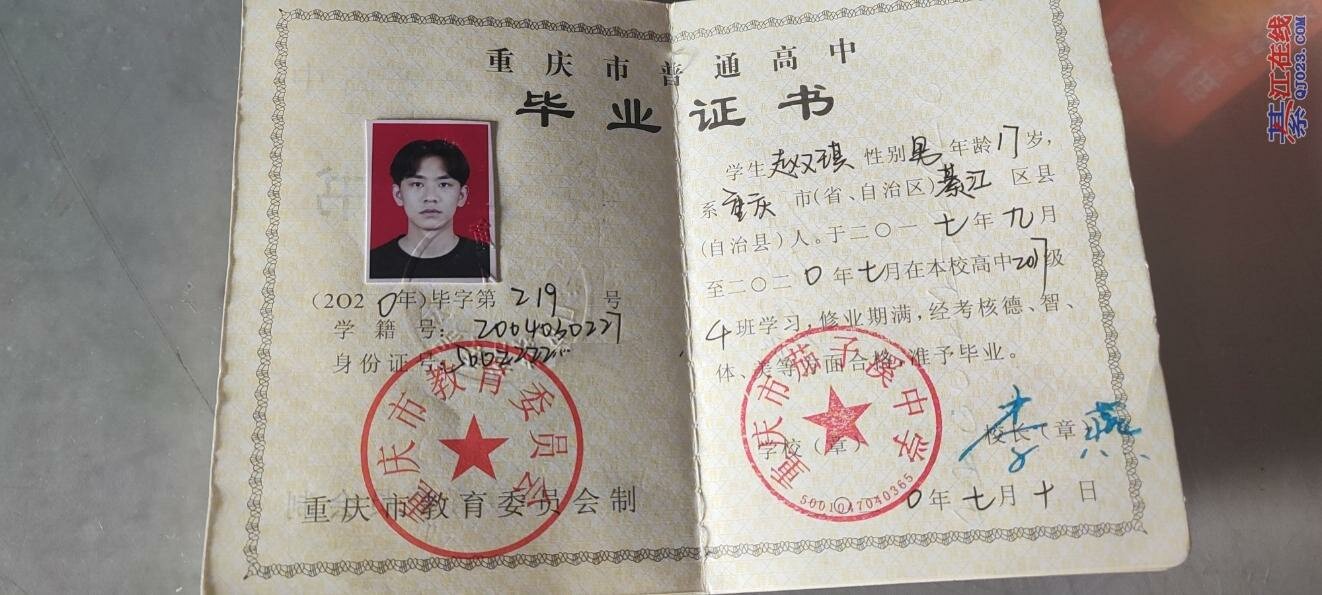 重庆市普通高中
毕业证书
(2020年)毕字第219号
学籍号:2004030227
身份证号:5002222...
重庆市教育委员会制
重庆市教育委员会
学生赵双琪性别男年龄17岁,
系重庆市(省、自治区)綦江区县
(自治县)人。于二〇一七年九月
至二〇二0年七月在本校高中2017级
4班学习,修业期满,经考核德、智、
体、美等方面合格,准予毕业。
学校(章)
校长(章)
李燕
0年七月十日
重庆市茄子溪中学
5001047040365
綦江在线
QJ023.COM